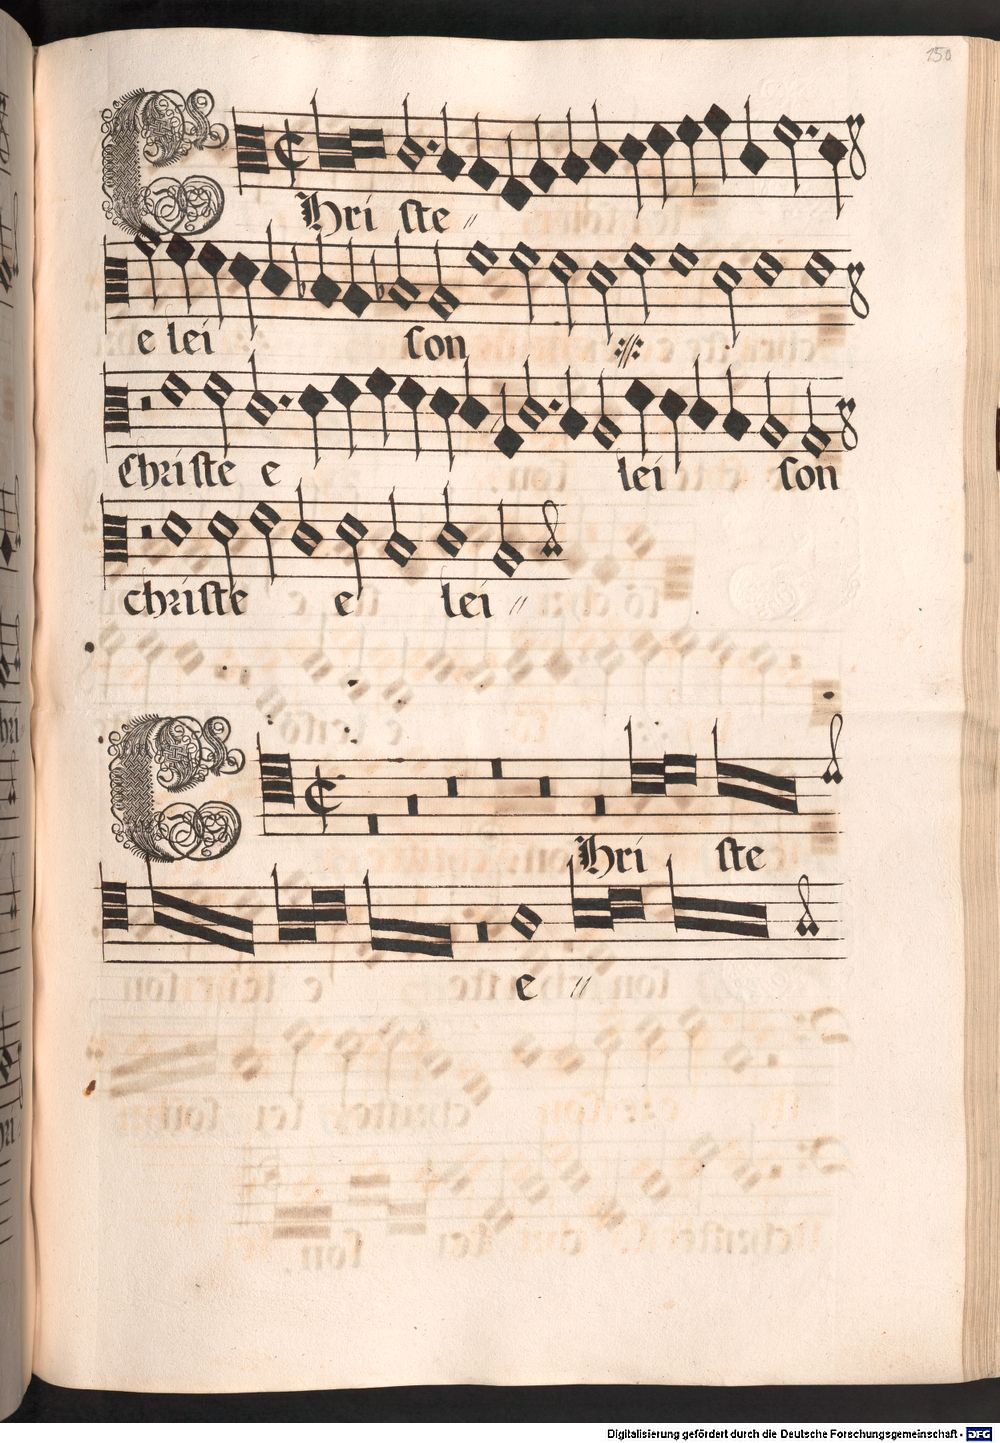 150
Christe //
e lei son //
Christe e lei son
christe e lei //
Christe
e //
Digitalisierung gefördert durch die Deutsche Forschungsgemeinschaft - DFG